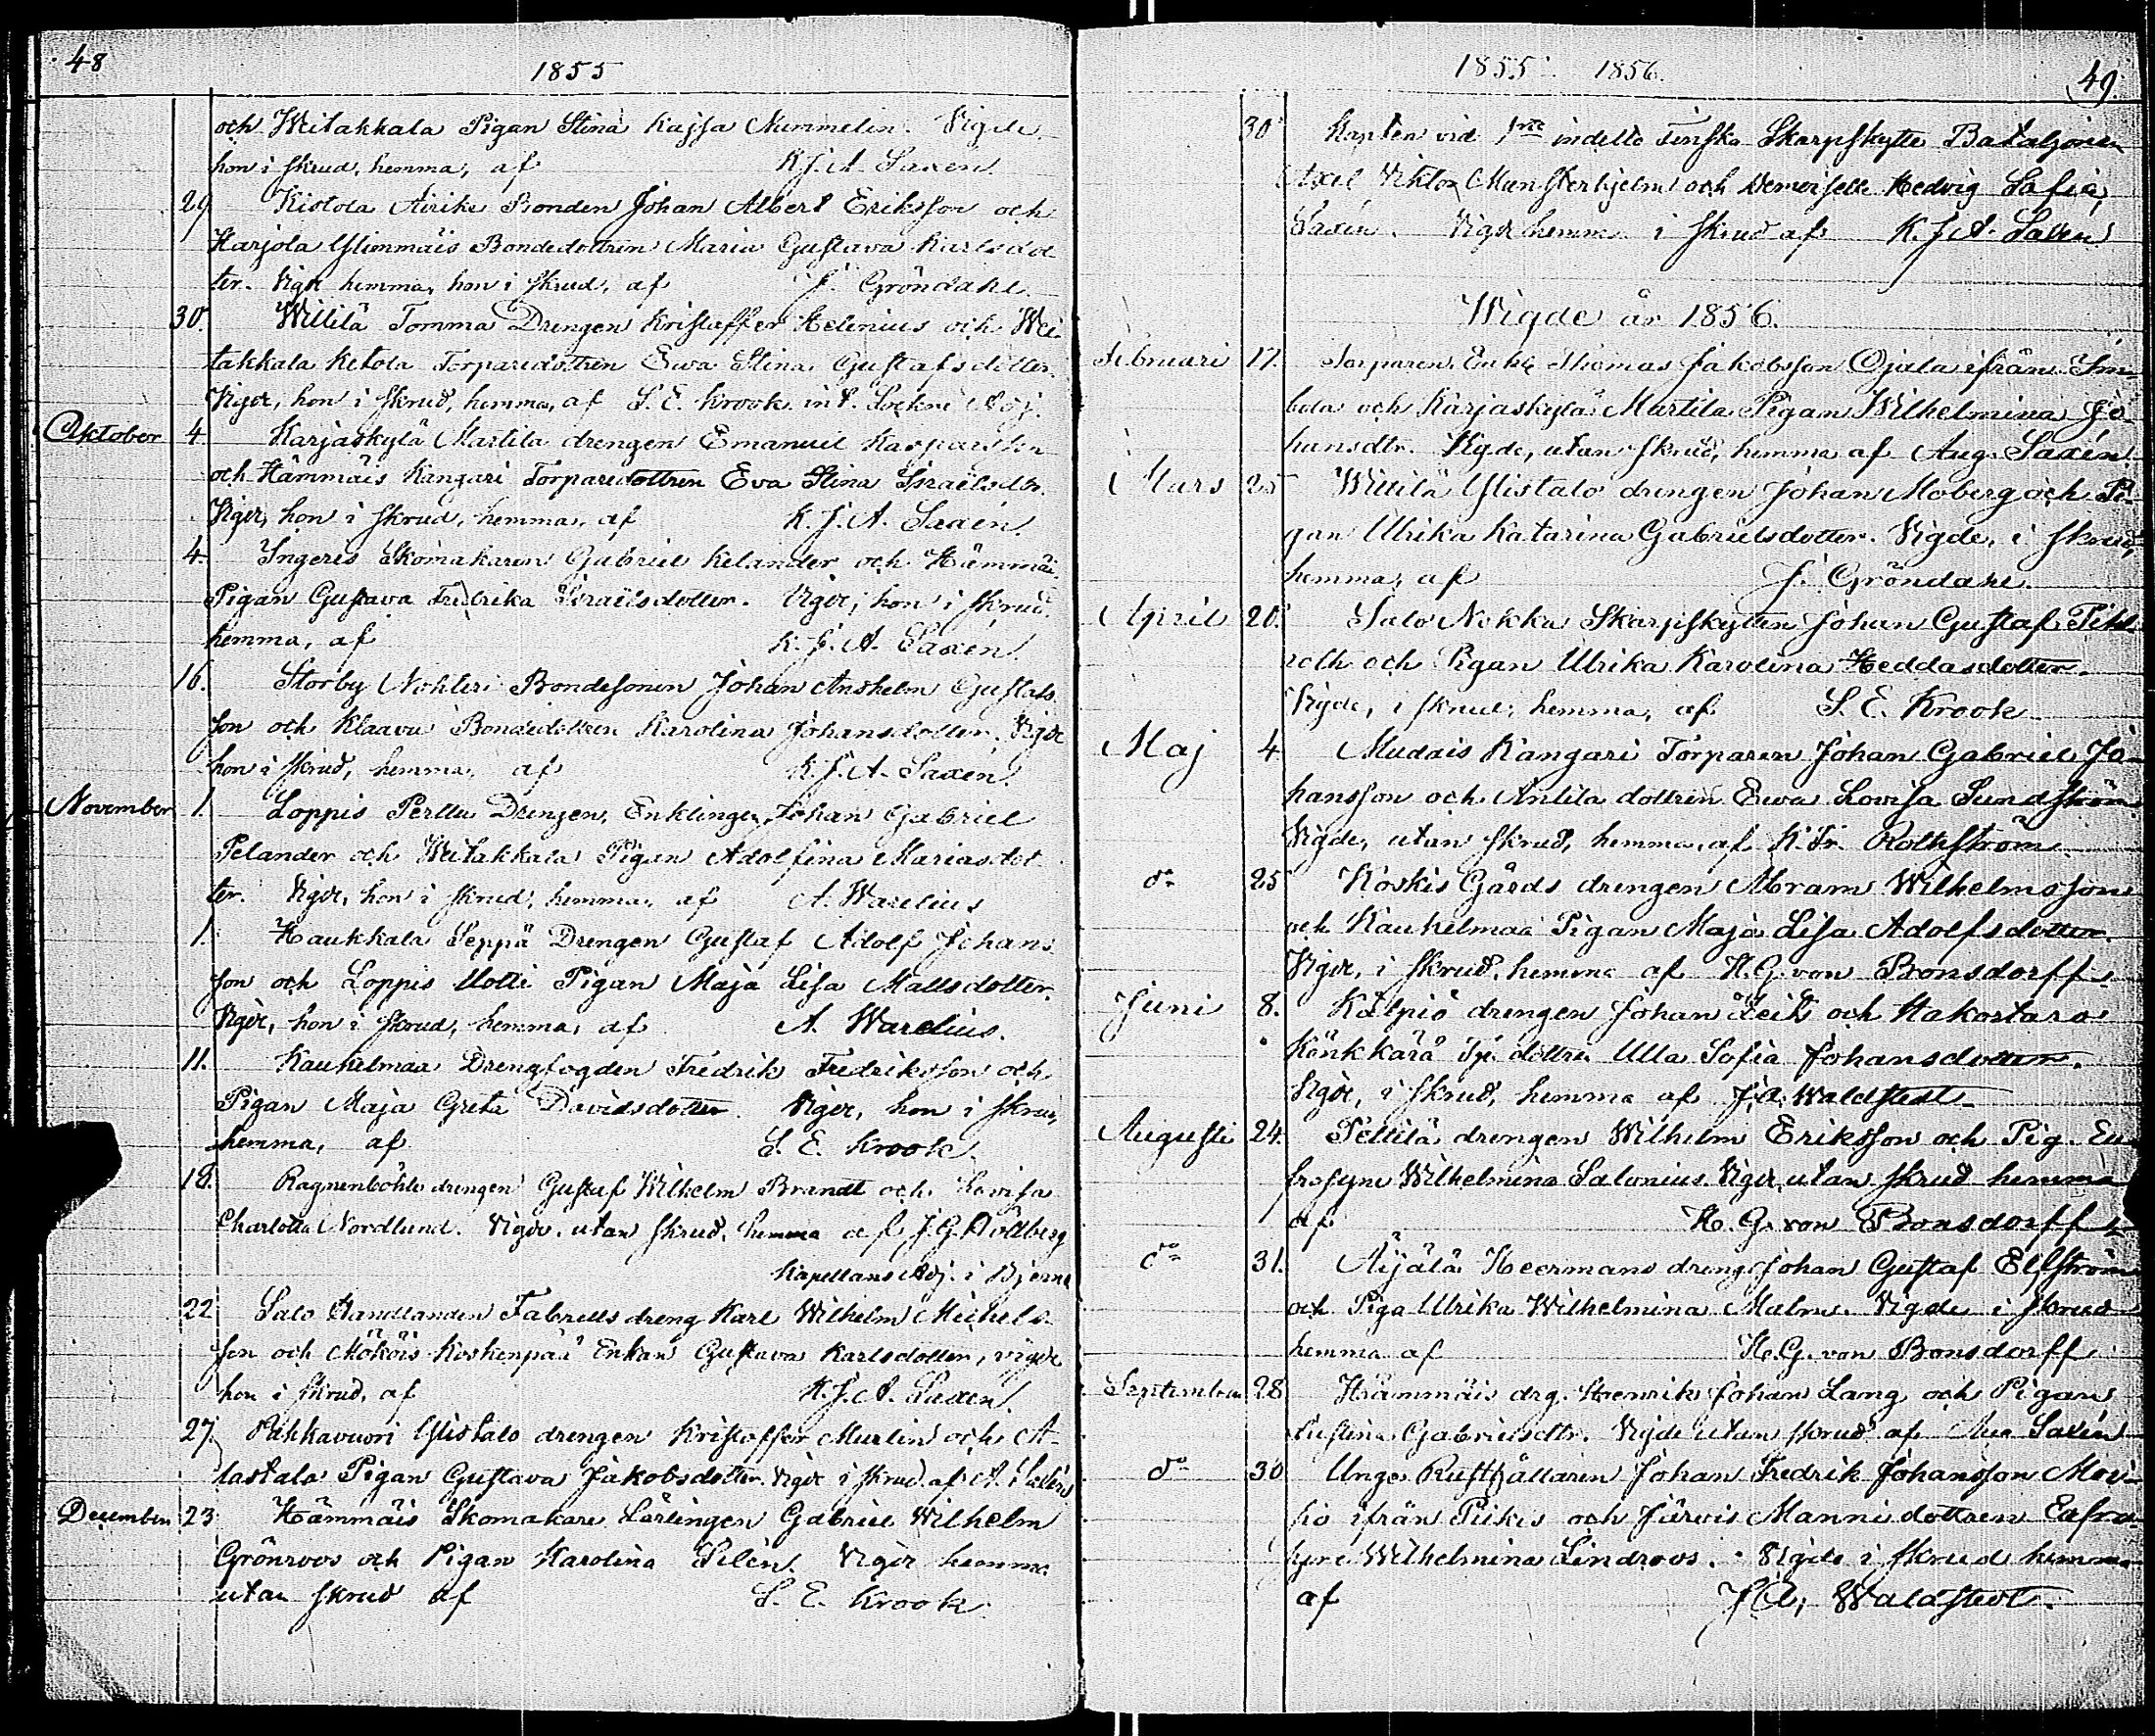 48
1855
och Weitakkala Pigan Stina Kajsa Nummelin. Vigde
hon i skrud, hemma, af K.J.A. Saxén.
29 Kistola Airiks Bonden Johan Albert Eriksson och
Karjola Ylimmäis Bondedottren Maria Gustava Karlsdot
ter. Vigde hemma, hon i skrud, af J. Gröndahl.
30. Willilä Tomma Drengen Kristaffer Helenius och Wei-
takkala Ketola Torparedottren Ewa Stina Gustafsdotter.
Vigde, hon i skrud, hemma, af S. E. Krook. Sockne Adj.
Oktober 4 Karjaskylä Martila drengen Emanuel Kasparsson
och Hämmäis Kangari Torparedottren Eva Stina Israelsdtr.
Vigde, hon i skrud, hemma, af K. J. A. Saxén.
4. Ingeris Skomakaren Gabriel Kelander och Hämmäi
Pigan Gustava Fredrika Israelsdotter. Vigde, hon i skrud.
hemma, af K. J. A. Saxén.
16. Storby Nohteri Bondesonen Johan Anshelm Gustafs
son och Klaavu Bondedottren Karolina Johansdotter. Vigde
hon i skrud, hemma, af K. J. A. Saxén.
November 1. Loppis Perttu Drengen, Enklingen Johan Gabriel
Pelander och Weitakkala Pigan Adolfina Mariasdot
ter. Vigde, hon i skrud, hemma, af A. Warelius
1. Haukkala Seppä Drengen Gustaf Adolf Johans
son och Loppis Uotti Pigan Maja Lisa Mattsdotter.
Vigde, hon i skrud, hemma, af A. Warelius.
11. Kaukelmaa Drengfogden Fredrik Fredriksson och
Pigan Maja Greta Davidsdotter. Vigde, hon i skrud,
hemma, af S. E. Krook.
18. Ragnenböhle drengen Gustaf Wilhelm Brandt och Lovisa
Charlotta Nordlund. Vigde, utan skrud, hemma af J. G.
Kapellans Adj. i Bjerno
22 Salo Handlanden Fabrells dreng Karl Wilhelm Michels
son och Mököis Koskenpää Enkan Gustava Karlsdotter, vigde
hon i skrud, af K. J. A. Saxén.
27. Pukkavuori Ylistalo drengen Kristoffer Murlin och A-
lastalo Pigan Gustava Jakobsdotter. Vigde i skrud af A. Saxén
December 23 Hämmäis Skomakare Lärlingen Gabriel Wilhelm
Grönroos och Pigan Karolina Silén. Vigde hemma
utan skrud af S. E. Krook.
1855. 1856.
49.
30 Kapten vid 1ra indelta Finska Skarpskytte Bataljonen
Axel Viktor Munsterhjelm och Demoiselle Hedvig Sofia
Saxén. Vigde hemma i skrud af K. J. A. Saxén
Wigde år 1856.
Februari 17. Torparen, Enkl. Thomas Jakobsson Ojala ifrån Im-
bola och Karjaskylä Martila Pigan Wilhelmina Jo-
hansdtr. Vigde, utan skrud, hemma af Aug. Saxén.
Mars 25 Willilä Ylistalo drengen Johan Moberg och Pi-
gan Ulrika Katarina Gabrielsdotter. Vigde, i skrud,
hemma, af J. Gröndahl.
April 20. Salo Nokka Skarpskytten Johan Gustaf
roth och Pigan Ulrika Karolina Heddasdotter.
Vigde, i skrud, hemma, af S. E. Krook
Maj 4. Mudais Kangari Torparen Johan Gabriel Jo-
hansson och Anlila dottren Ewa Lovisa Sundström
Vigde, utan skrud, hemma, af K. Fr. Rothström.
do 25 Koskis Gårds drengen Abram Wilhelmsson
och Kaukelmaa Pigan Maja Lisa Adolfsdotter.
Vigde, i skrud, hemma af H. G. von Bonsdorff
Juni 8. Kälpiö drengen Johan Leit och Hakostaro
Könkkärä Tp. dottren Ulla Sofia Johansdotter.
Vigde, i skrud, hemma af J. A. Waldstedt
Augusti 24. Pettilä drengen Wilhelm Eriksson och Pig. Eu-
frosyne Wilhelmina Salonius. Vigde, utan skrud hemma
af H. G. von Bonsdorff
do 31. Äijälä Heermans dreng Johan Gustaf Elfström
och Piga Ulrika Wilhelmina Malm. Vigde i skrud
hemma af H. G. von Bonsdorff.
September 28 Hämmäis drg. Henrik Johan Lang och Pigan
Justina Gabrielsdtr. Vigde utan skrud af Aug Saxén
do 30 Unge Rusthållaren Johan Fredrik Johansson Moi-
sio ifrån Pikis och Järvis Manni dottren Eufro-
syne Wilhelmina Lindroos. Vigde i skrud hemma
af J A, Waldstedt.